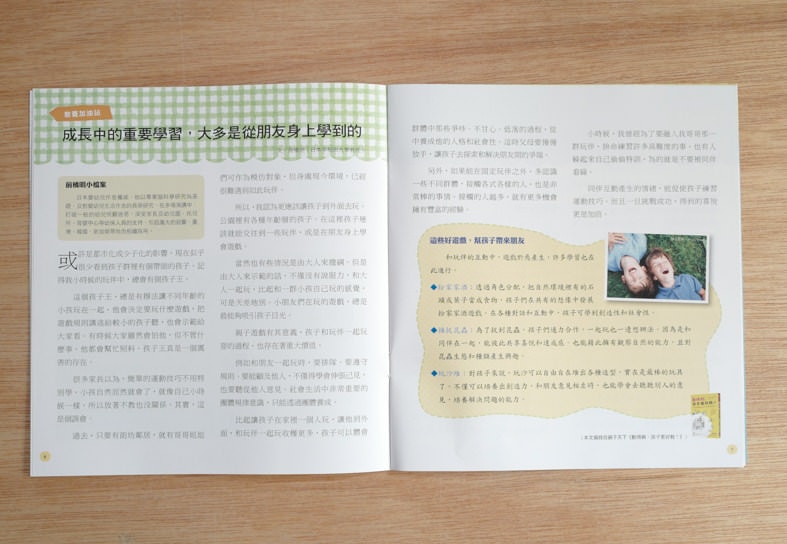 教養加油站
成長中的重要學習，大多是從朋友身上學到的
前橋明小檔案
或許是都市化或少子化的影響，現在似乎
很少看到孩子群裡有個帶頭的孩子。記
得我小時候的玩伴中，總會有個孩子王。
這個孩子王，總是有辦法讓不同年齡的
小孩玩在一起。他會決定要玩什麼遊戲、把
遊戲規則講造給較小的孩子聽，也會示範給
大家看。有時候大家雖然會怕他，但不管什
麼事，他都會幫忙照料。孩子王真是一個厲
害的存在。
很多家長以為，簡單的運動技巧不用特
別學，小孩自然而然就會了，就像自己小時
候一樣，所以放著不教也沒關係。其實，這
是個誤會。
過去，只要有街坊鄰居，就有哥哥姐姐
們可作為模仿對象。但身處現今環境，已經
很難遇到如此玩伴。
所以，我認為更應該讓孩子到外面去玩。
公園裡有各種年齡層的孩子，在這裡孩子應
該就能交往到一些玩伴，或是在朋友身上學
會遊戲。
當然也有些情況是由大人來邀稱。但是
由大人來示範的話，不僅沒有說服力，和大
人一起玩，比起和一群小孩自己玩的感覺，
可是天差地別。小朋友們在玩的遊戲，總是
最能夠吸引孩子目光。
親子遊戲有其意義，孩子和玩伴一起玩
耍的過程，也存在著重大價值。
例如和朋友一起玩時，要排隊、要遵守
規則、要能顧及他人，不僅得學會伸張己見，
也要聽從他人意見。社會生活中非常重要的
團體規律意識，只能透過團體養成。
比起讓孩子在家裡一個人玩，讓他到外
面，和玩伴一起玩收穫更多。孩子可以體會
8
群體中那些爭吵、不甘心、低落的過程，從
中養成他的人格和社會性。這時父母要慢慢
放手，讓孩子去探索和解決朋友間的爭端。
另外，如果能在固定玩伴之外，多認識
一些不同群體，接觸各式各樣的人，也是非
常棒的事情。接觸的人越多，就有更多機會
擁有豐富的經驗。
小時候，我曾經為了要融入我哥哥那一
群玩伴，拚命練習許多高難度的事，也有人
躲起來自己偷偷特訓，為的就是不要被同伴
看輕。
同伴互動產生的情緒，能促使孩子練習
運動技巧，而且一旦挑戰成功，得到的喜悅
更是加倍。
這些好遊戲，幫孩子帶來朋友
和玩伴的互動中，遊戲於焉產生，許多學習也在
此進行。
◆扮家家酒：透過角色分配，把自然環境裡有的石
頭或葉子當成食物，孩子們在共有的想像中發展
扮家家酒遊戲，在各種對話和互動中，孩子可學到創造性和社會性。
◆捕捉昆蟲：為了抓到昆蟲，孩子們通力合作，一起玩也一邊想辦法。因為是和
同伴在一起，能彼此共享喜悅和達成感，也能藉此擁有觀察自然的能力，且對
昆蟲生態和種類產生興趣。
◆玩沙堆：對孩子來說，玩沙可以自由自在堆出各種造型，實在是最棒的玩具
了。不僅可以培養出創造力，和朋友意見相左時，也能學會去聽聽別人的意
見，培養解決問題的能力。
（本文摘錄自親子天下《動得夠，孩子更好動！》）
9